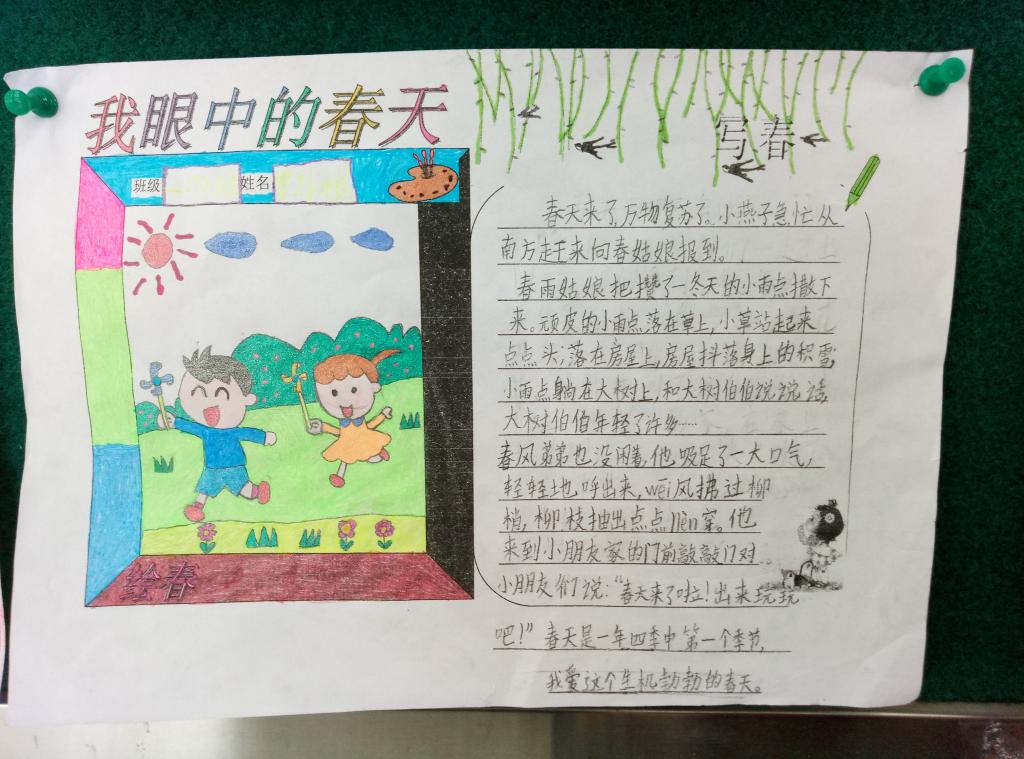 我眼中的春天
班级 姓名
绘春
写春
春天来了,万物复苏了。小燕子急忙从
南方赶来向春姑娘报到。
春雨姑娘把攒了一冬天的小雨点撒下
来。顽皮的小雨点落在草上,小草站起来
点点头;落在房屋上,房屋抖落身上的积雪;
小雨点躺在大树上,和大树伯伯说说话,
大树伯伯年轻了许多……
春风弟弟也没闲着,他吸足了一大口气,
轻轻地呼出来,wēi风拂过柳
梢,柳枝抽出点点nèn芽。他
来到小朋友家的门前敲敲门对
小朋友们说:“春天来了啦!出来玩玩
吧!”春天是一年四季中第一个季节,
我爱这个生机勃勃的春天。